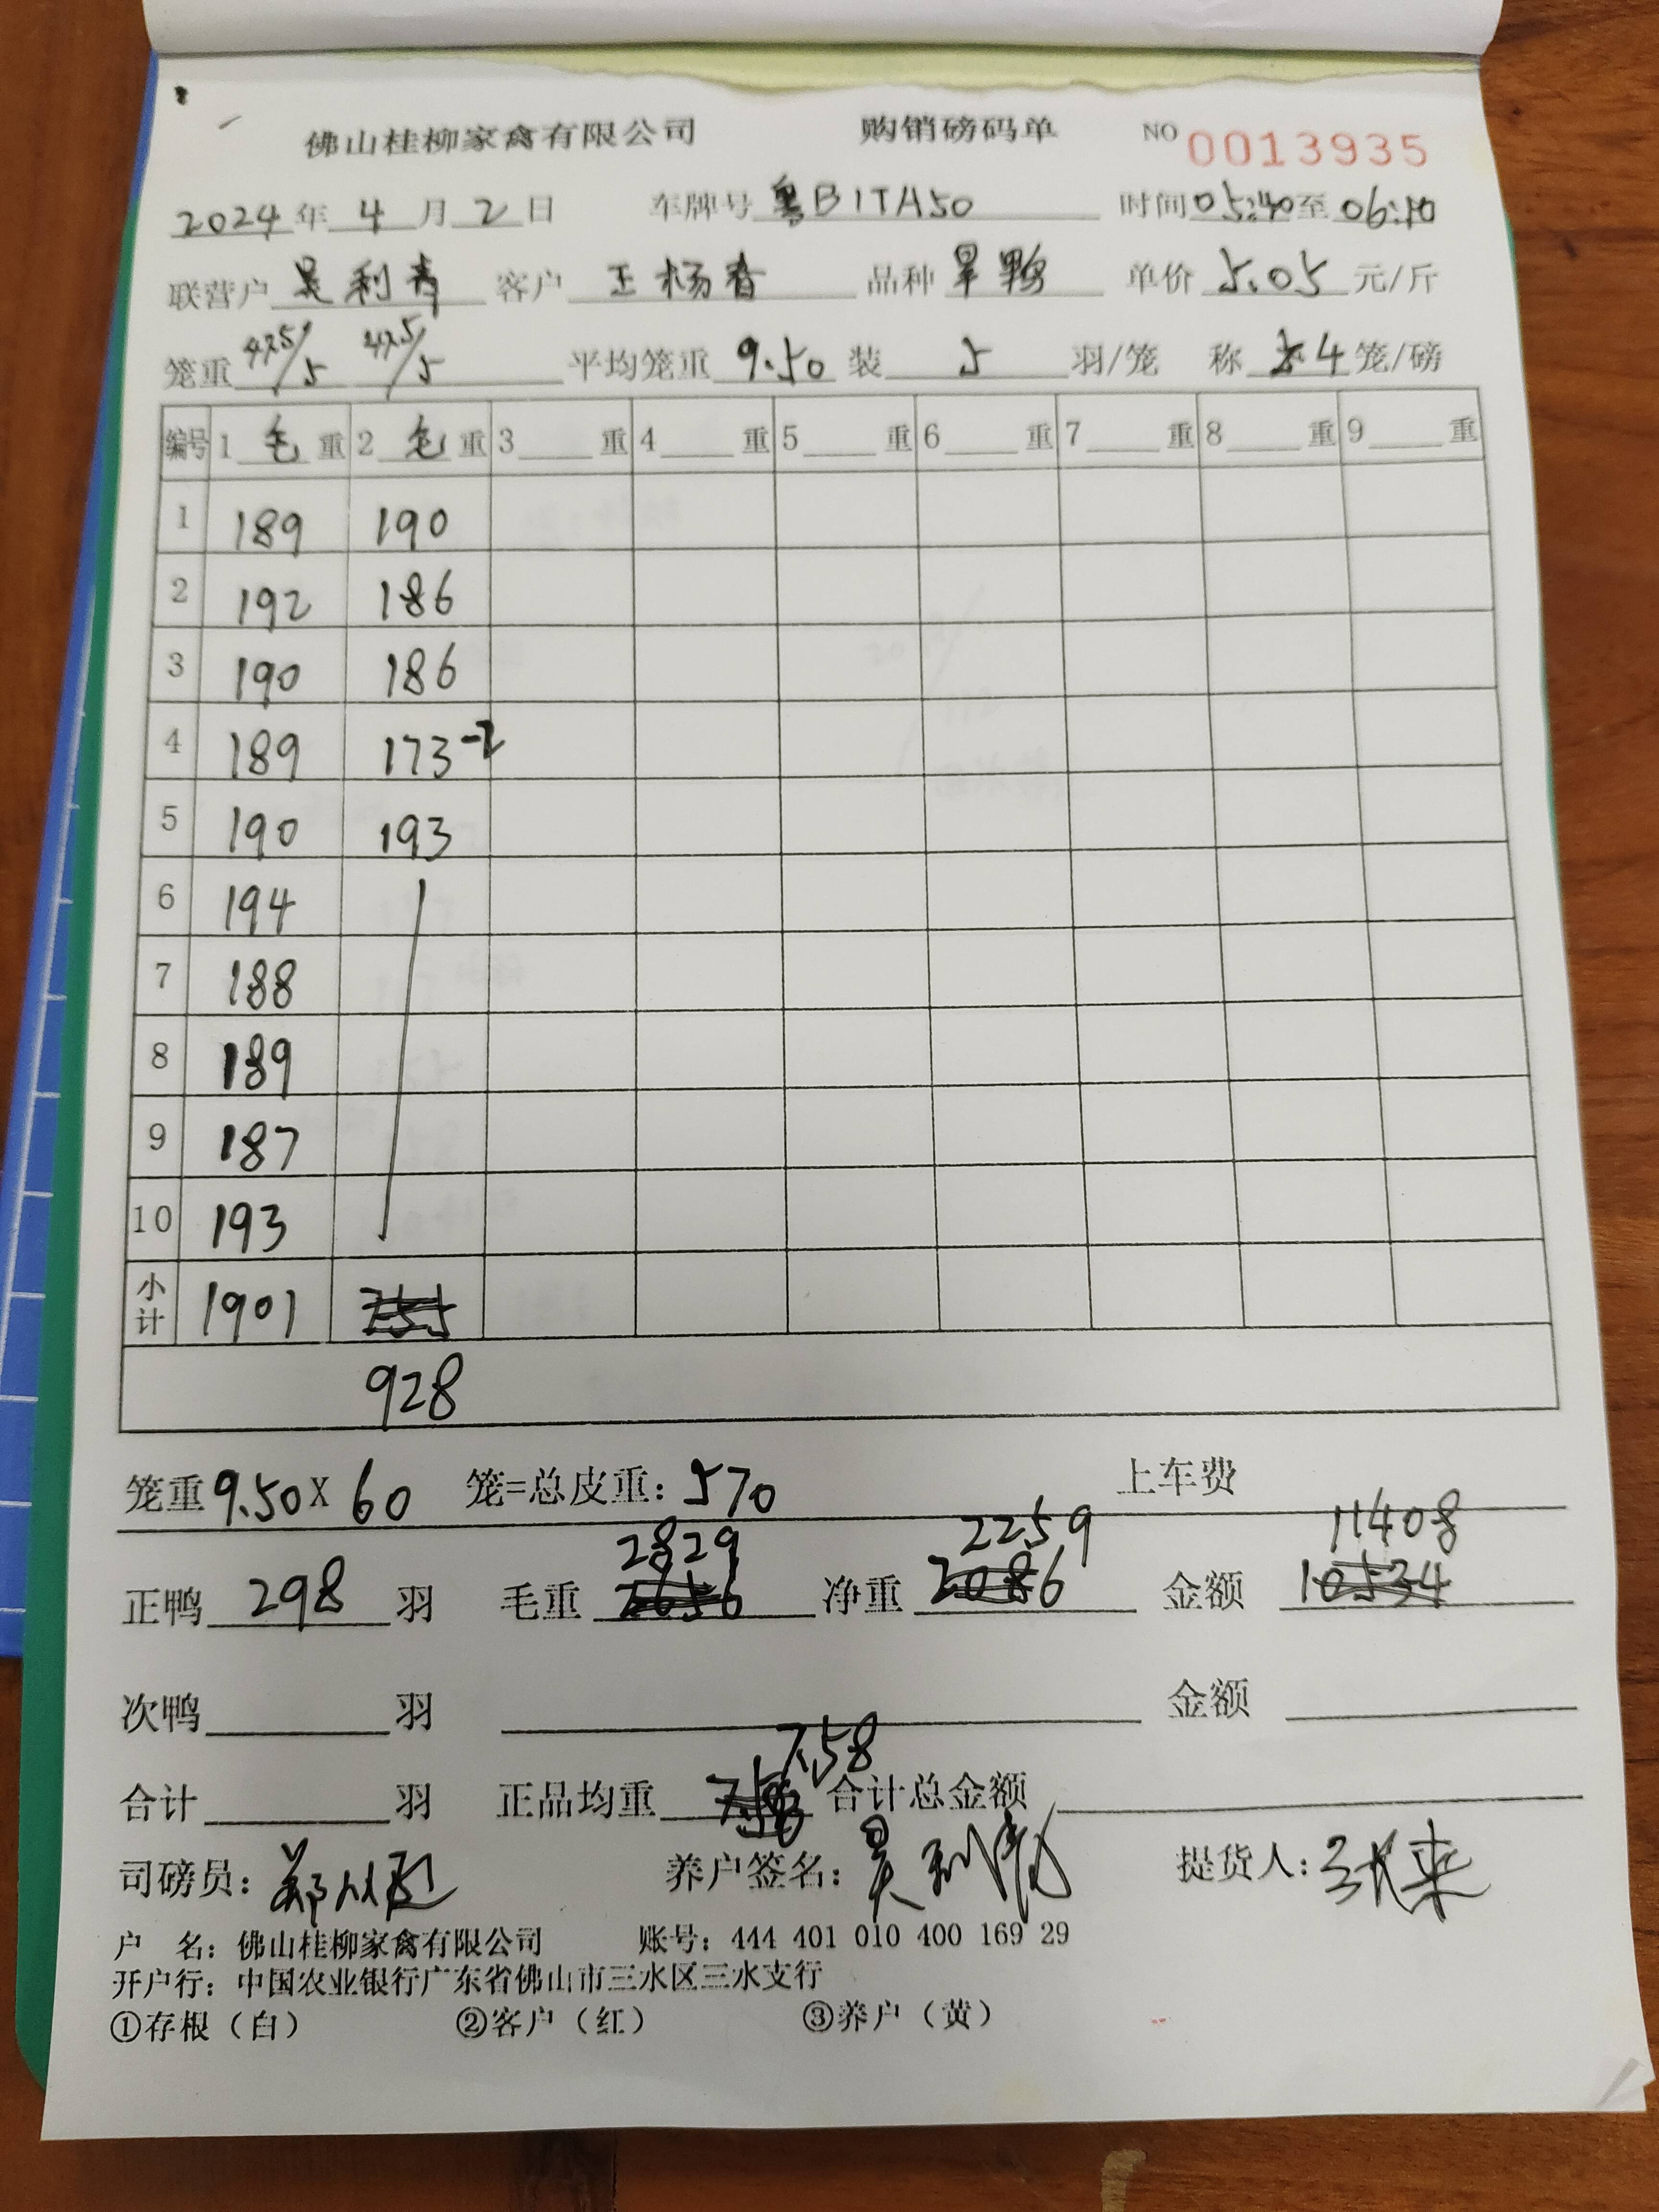 佛山桂柳家禽有限公司 购销磅码单 NO 0013935
2024年4月2日 车牌号 粤B1TA50 时间 05:40至06:10
联营户 吴利青 客户 王杨春 品种 旱鸭 单价 5.05 元/斤
笼重 47.5/5 47.5/5 平均笼重 9.50 装 5 羽/笼 称 4 笼/磅
编号 1 毛 重 2 毛 重 3 重 4 重 5 重 6 重 7 重 8 重 9 重
1 189 190
2 192 186
3 190 186
4 189 173-2
5 190 193
6 194
7 188
8 189
9 187
10 193
小计 1901 755
928
笼重 9.50 X 60 笼=总皮重: 570 上车费
2829 2259 11408
正鸭 298 羽 毛重 2656 净重 2086 金额 10534
次鸭 羽 金额
7.58
合计 羽 正品均重 合计总金额
司磅员: 养户签名: 吴利青 提货人:
户 名: 佛山桂柳家禽有限公司 账号: 444 401 010 400 169 29
开户行: 中国农业银行广东省佛山市三水区三水支行
①存根（白） ②客户（红） ③养户（黄）